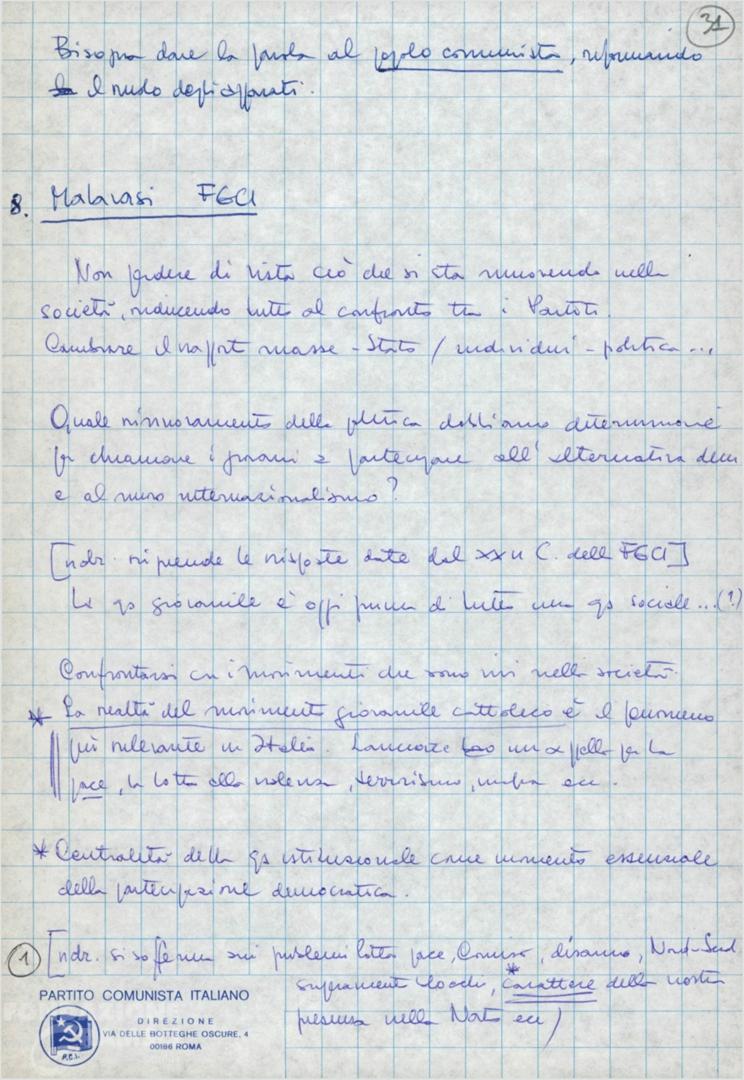 31
Bisogna dare la parola al popolo comunista, riformando
il ruolo degli apparati.
8. Malavasi FGCI
Non perdere di vista ciò che si sta muovendo nella
società, riducendo tutto al confronto tra i Partiti.
Cambiare il rapport masse - Stato / individui - politica ...
Quale rinnovamento della politica dobbiamo determinare
per chiamare i giovani a partecipare all'alternativa dem
e al nuovo internazionalismo?
[ndr. riprende le risposte date dal XXII C. della FGCI]
La qs giovanile è oggi prima di tutto una qs sociale...(?)
Confrontarsi con i movimenti che sono vivi nella società.
* La realtà del movimento giovanile cattolico è il fenomeno
più rilevante in Italia. Lanciare un appello per la
pace, la lotta alla violenza, terrorismo, mafia ecc.
* Centralità della qs istituzionale come momento essenziale
della partecipazione democratica.
1 [ndr. si sofferma sui problemi lotta pace, Comiso, disarmo, Nord-Sud
superamento blocchi, * carattere della nostra
presenza nella Nato ecc]
PARTITO COMUNISTA ITALIANO
DIREZIONE
VIA DELLE BOTTEGHE OSCURE, 4
00186 ROMA
P.C.I.